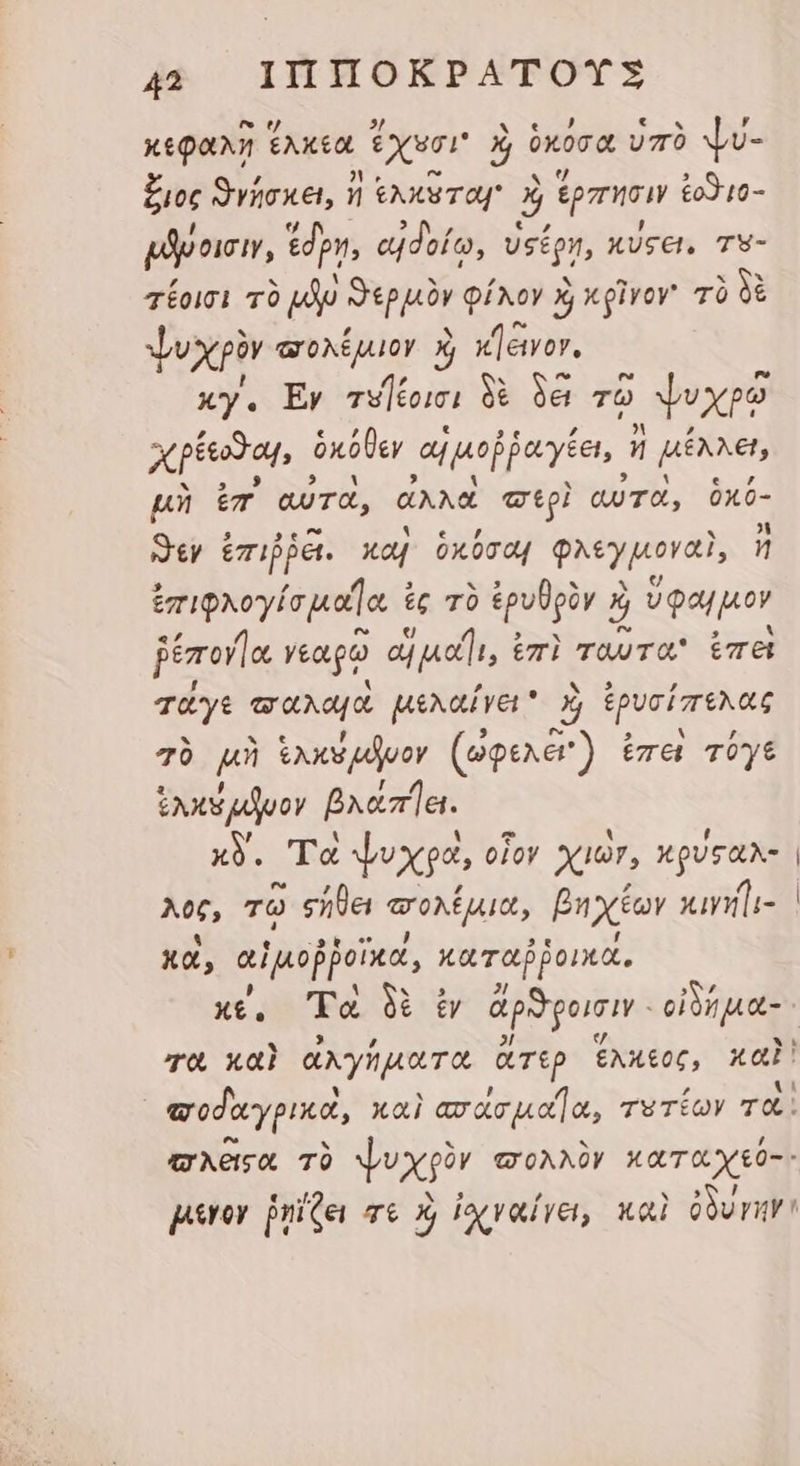 42 ΙΠΠΟΚΡΑΤΟΥΣ
κεφαλῇ ἕλκεα ἔχουσι· καὶ ὁκόσα ὑπὸ ψύ-
ξιος θνήσκει, ἢ ἑλκοῦται· καὶ ἕρπησιν ἐσθιο-
μένοισιν, ἕδρη, αἰδοίῳ, ὑστέρη, κύστει. του-
τέοισι τὸ μὲν θερμὸν φίλον καὶ κρῖνον· τὸ δὲ
ψυχρὸν πολέμιον καὶ κτεῖνον.
κγ΄. Εν τουτέοισι δὲ δεῖ τῷ ψυχρῷ
χρέεσθαι, ὁκόθεν αἱμοῤῥαγέει, ἢ μέλλει,
μὴ ἐπ' αὐτὰ, ἀλλὰ περὶ αὐτὰ, ὁκό-
θεν ἐπιῤῥεῖ. καὶ ὁκόσαι φλεγμοναὶ, ἢ
ἐπιφλογίσματα ἐς τὸ ἐρυθρὸν καὶ ὕφαιμον
ῥέποντα νεαρῷ αἵματι, ἐπὶ ταῦτα· ἐπεὶ
τάγε παλαιὰ μελαίνει· καὶ ἐρυσίπελας
τὸ μὴ ἑλκούμενον (ὠφελεῖ·) ἐπεὶ τόγε
ἑλκούμενον βλάπτει.
κδ΄. Τὰ ψυχρὰ, οἷον χιὼν, κρύσταλ-
λος, τῷ στήθει πολέμια, βηχέων κινητι-
κὰ, αἱμοῤῥοϊκὰ, καταῤῥοικά.
κέ. Τὰ δὲ ἐν ἄρθροισιν οἰδήμα-
τα καὶ ἀλγήματα ἄτερ ἕλκεος, καὶ
ποδαγρικὰ, καὶ σπάσματα, τουτέων τὰ
πλεῖστα τὸ ψυχρὸν πολλὸν καταχεό-
μενον ῥηΐζει τε καὶ ἰσχναίνει, καὶ ὀδύνην